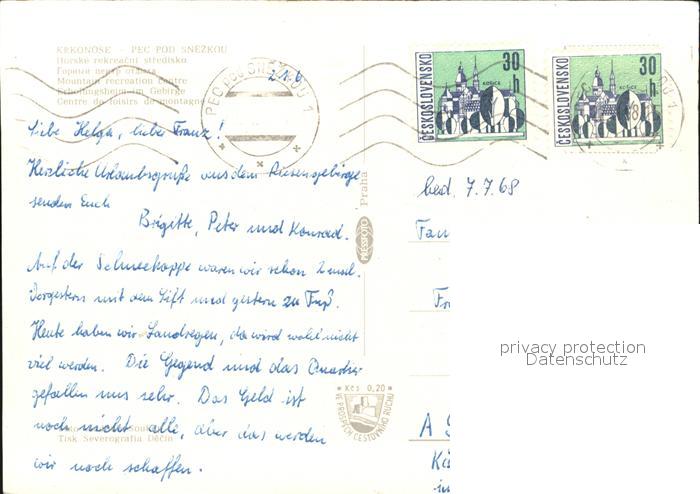 KRKONOŠE - PEC POD SNĚŽKOU
Horské rekreační středisko
Горный центр отдыха
Mountain recreation centre
Erholungsheim im Gebirge
Centre de loisirs de montagne
PEC POD SNĚŽKOU 1
ČESKOSLOVENSKO
30 h
KOŠICE
ČESKOSLOVENSKO
30 h
KOŠICE
Liebe Helga, lieber Franz!
Herzliche Urlaubsgrüße aus dem Riesengebirge
senden Euch
Brigitte, Peter und Konrad.
Auf der Schneekoppe waren wir schon 2 mal.
Vorgestern mit dem Lift und gestern zu Fuß.
Heute haben wir Landregen, da wird wohl nicht
viel werden. Die Gegend und das Quartier
gefallen uns sehr. Das Geld ist
noch nicht alle, aber das werden
wir noch schaffen.
Tisk Severografia Děčín
PRESSFOTO Praha
Kčs 0,20
VE PROSPĚCH CESTOVNÍHO RUCHU
7.7.68
Fam
Fr
A
privacy protection
Datenschutz